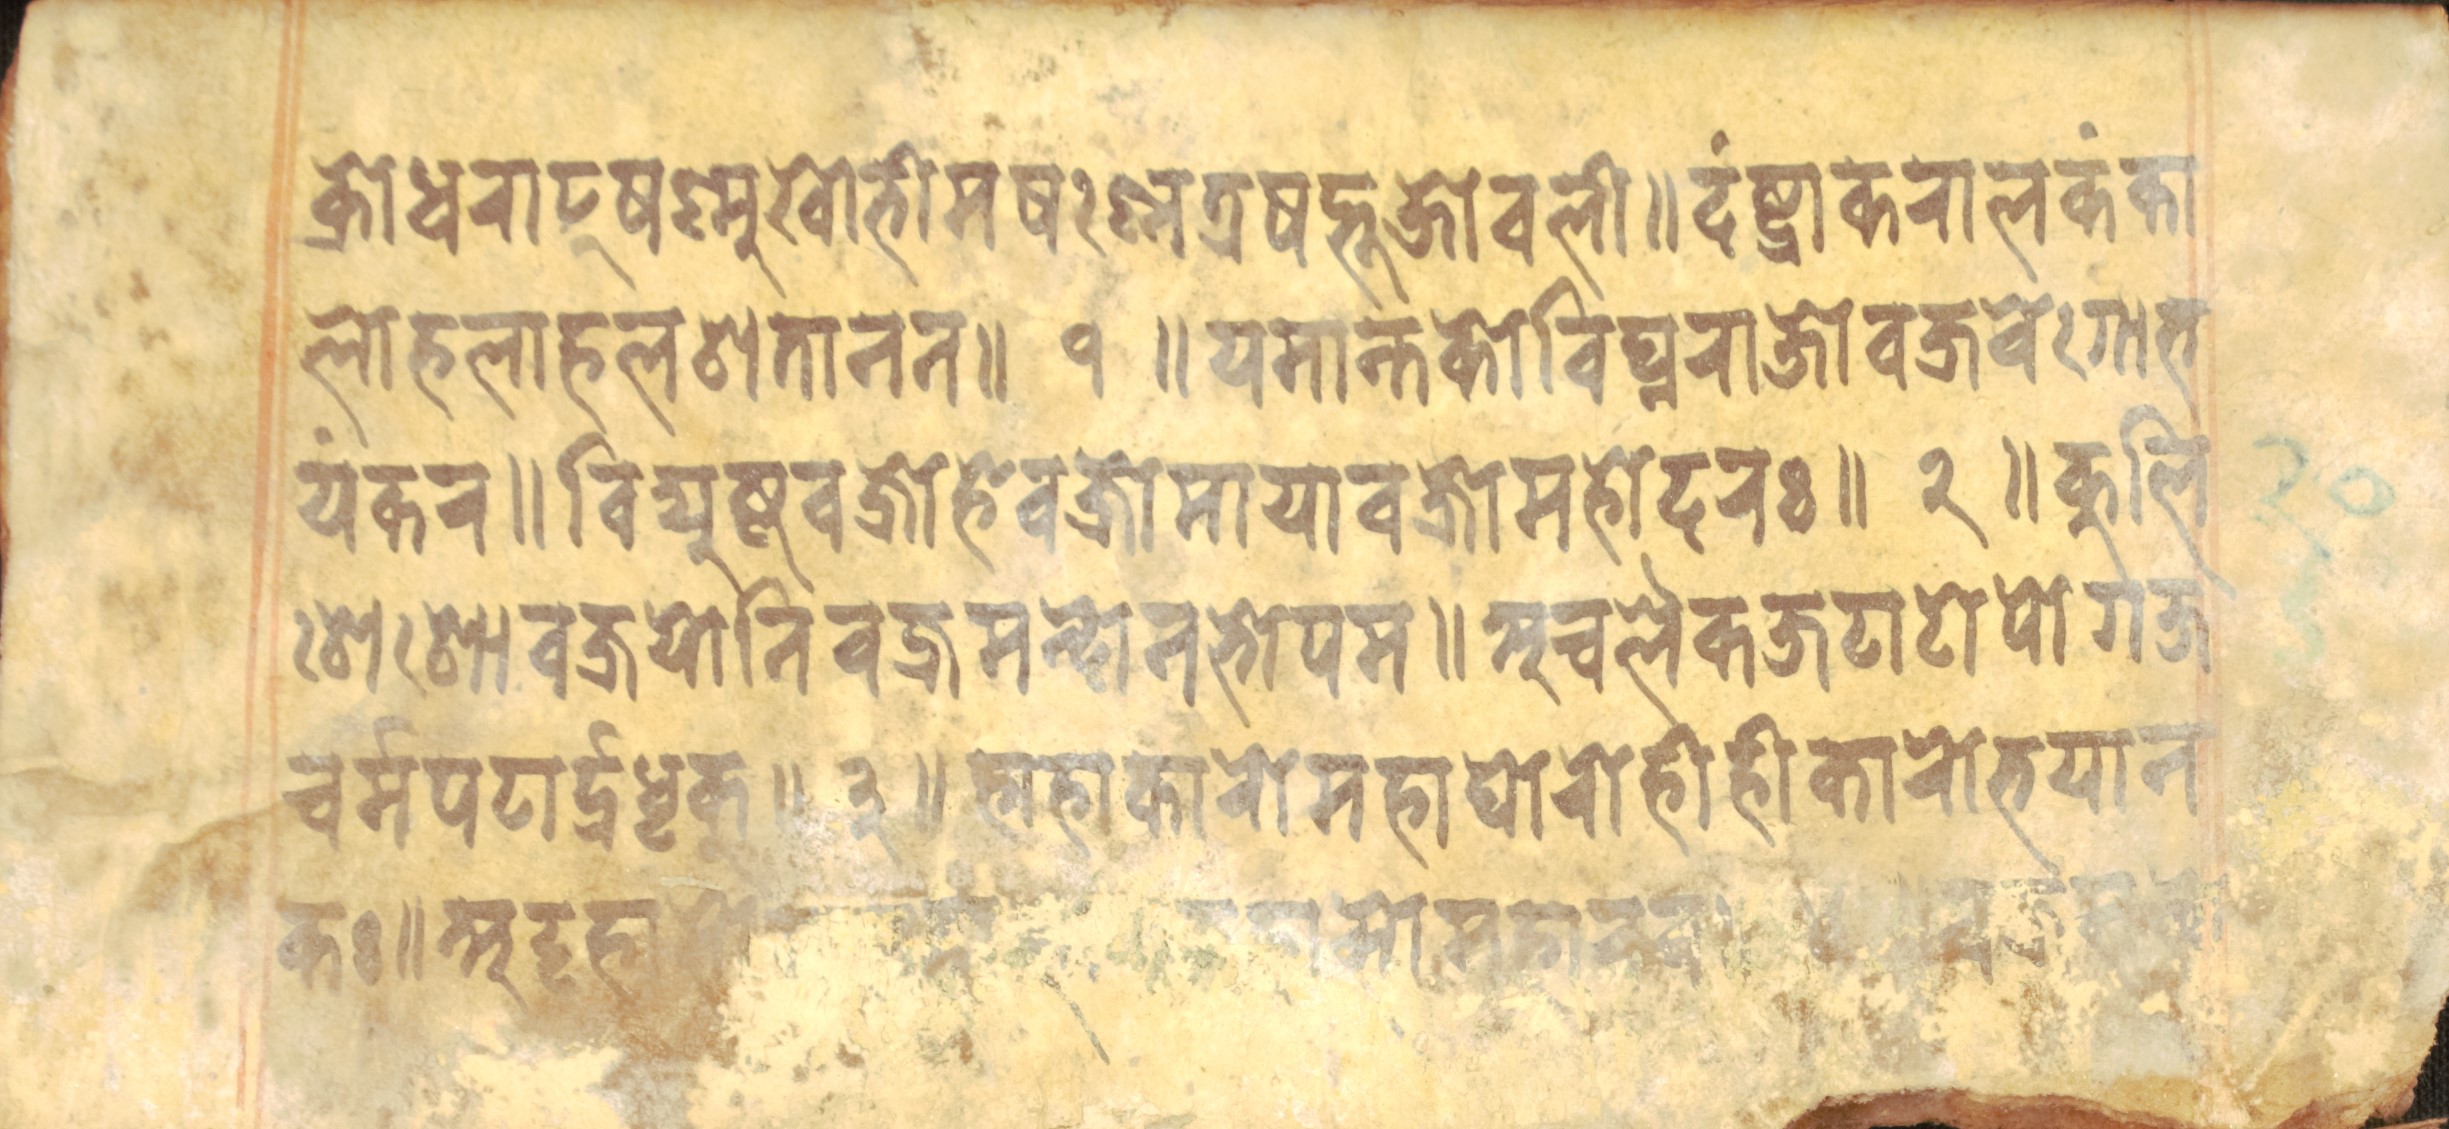 क्रोधराट्षण्मुखोभीमषण्नेत्रषड्भुजोबली॥दंष्ट्राकरालकंका
लोहलाहलशतानन॥ १ ॥यमान्तकोविघ्नराजोवज्रवेगोभ
यंकर॥विघ्युष्टवज्रोहृवज्रोमायावज्रोमहोदरः॥ २ ॥कुलि
शेशोवज्रयोनिवज्रमन्दोनभोपम॥अचलैकजटाटोपोगज
चर्मपटार्द्रधृक्॥ ३ ॥हाहाकारोमहाघोरोहीहीकारोभयान
कः॥अट्टहा
२०